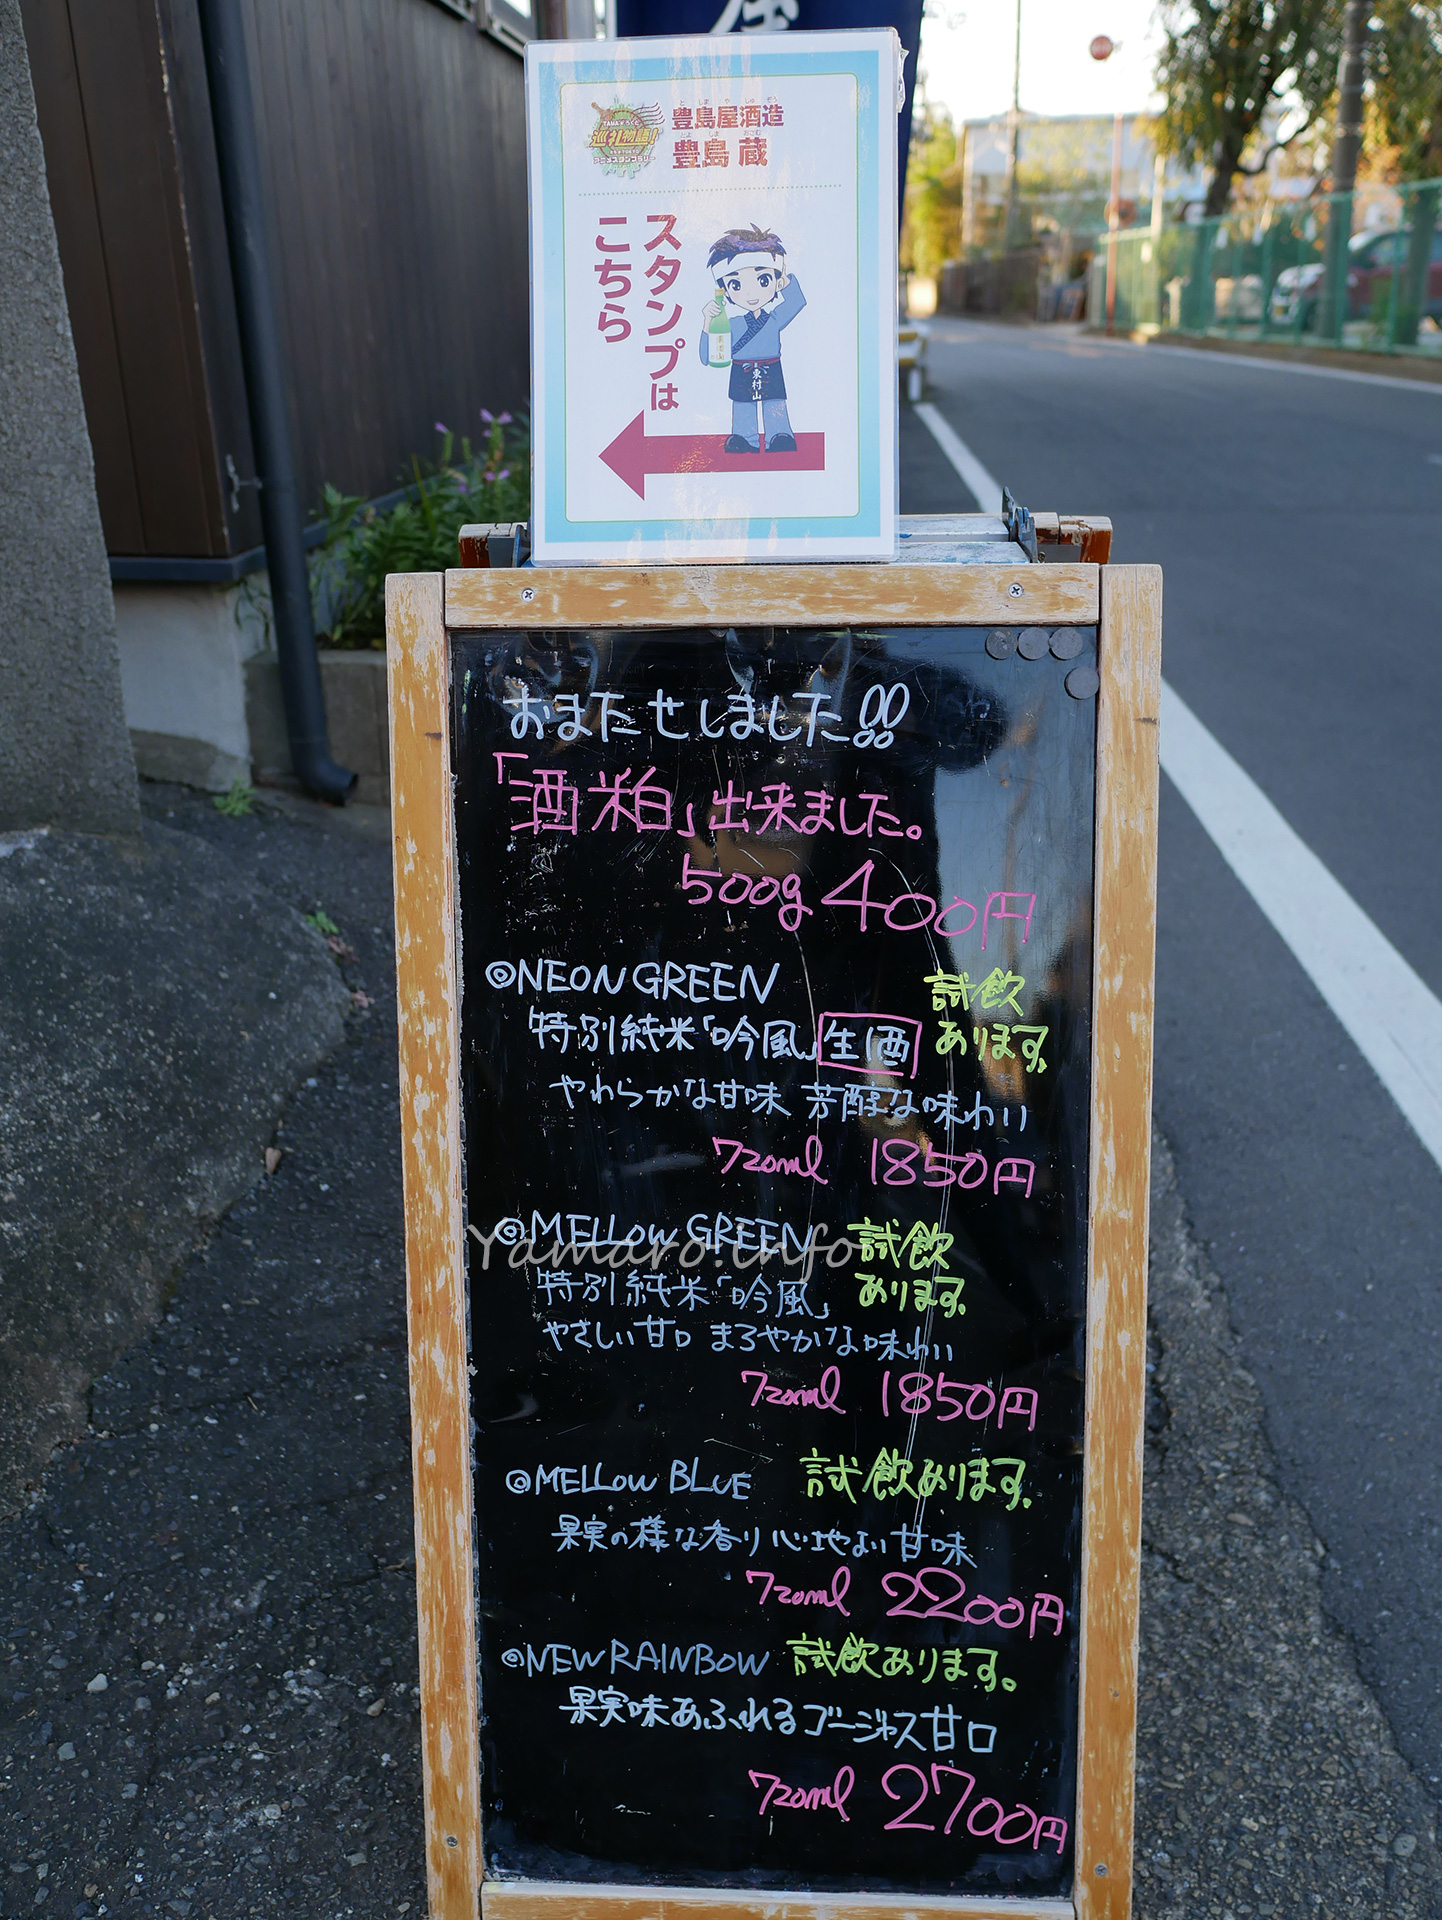 屋
TAMA
巡礼物語!
アニメスタンプラリー
としまやしゅぞう
豊島屋酒造
豊島 蔵
スタンプは
こちら
東村山
おまたせしました!!
「酒粕」出来ました。
500g 400円
◎NEON GREEN 試飲
特別純米「吟風」生酒 あります。
やわらかな甘味 芳醇な味わい
720ml 1850円
◎MELLOW GREEN 試飲
Yamaro.info
特別純米「吟風」 あります。
やさしい甘口 まろやかな味わい
720ml 1850円
◎MELLOW BLUE 試飲あります。
果実の様な香り 心地よい甘味
720ml 2200円
◎NEW RAINBOW 試飲あります。
果実味あふれるゴージャス甘口
720ml 2700円